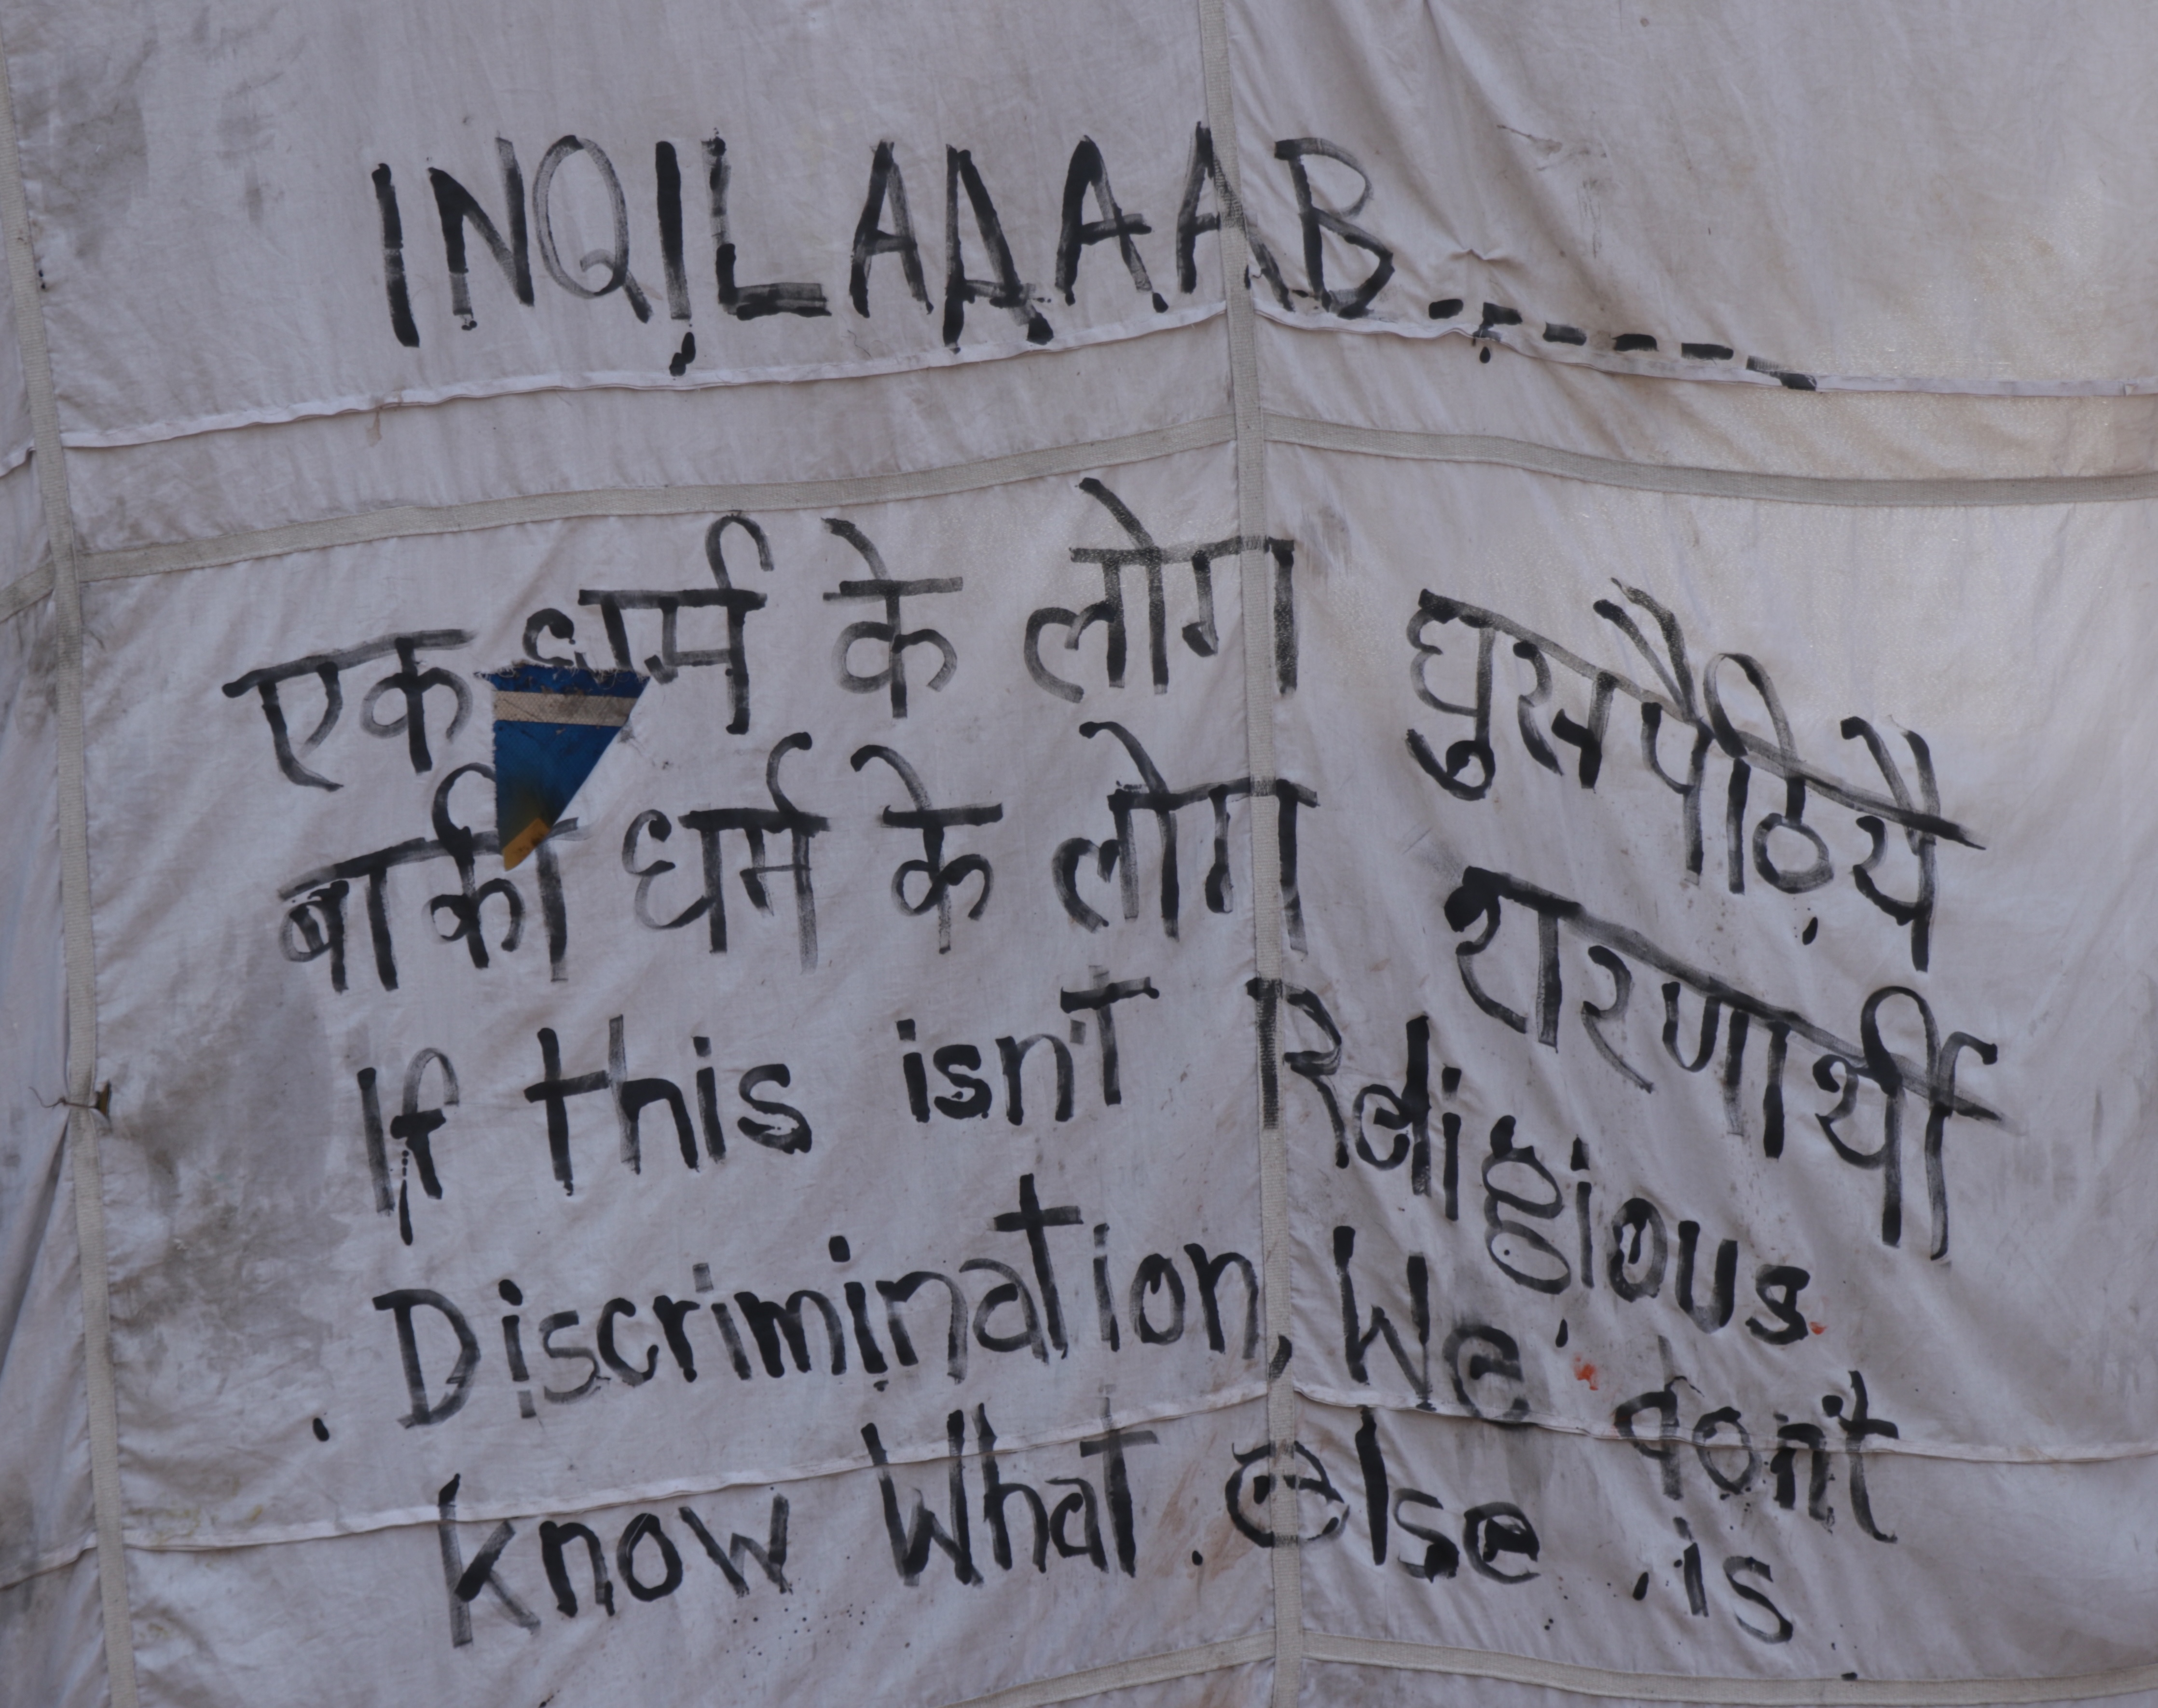 INQILAAAAB.------
एक धर्म के लोग घुसपैठिये
बाकी धर्म के लोग शरणार्थी
If this isn't Religious
Discrimination, We don't
know What else is